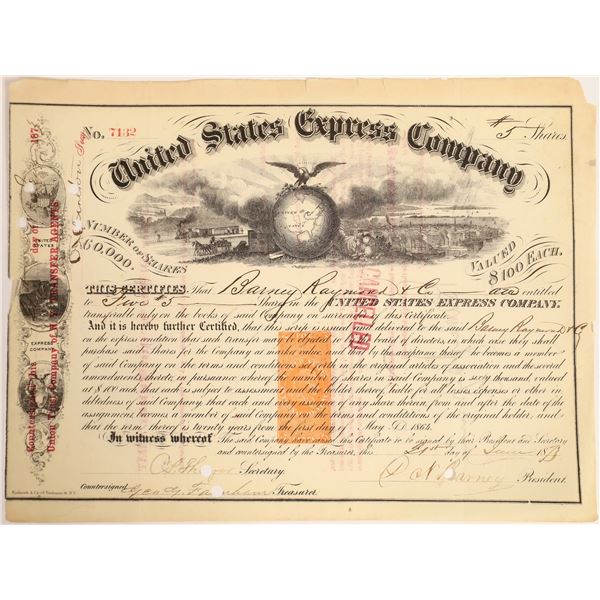 No. 7432
$5 Shares.
United States Express Company
NUMBER OF SHARES
60,000.
VALUED
$100 EACH.
THIS CERTIFIES, That Barney Raymond & Co are entitled
to Five $5 Shares in the UNITED STATES EXPRESS COMPANY,
transferable only on the books of said Company on surrender of this Certificate.
And it is hereby further Certified, that this scrip is issued and delivered to the said Barney Raymond & Co
on the express condition that such transfer board of directors, in which case they shall
purchase said Shares for the Company at market value by the acceptance thereof he becomes a member
of said Company on the terms and conditions set forth in the original articles of association and the several
amendments thereto; in pursuance whereof the number of shares in said Company is sixty thousand, valued
at $100 each, that each is subject to assessment and the holder thereof liable for all losses, expenses or other in-
debtedness of said Company, that each and every assignee of any share therein, from and after the date of the
assignment, becomes a member of said Company on the terms and conditions of the original holder, and
that the term thereof is twenty years from the first day of May, A.D. 1864.
In witness whereof The said Company have caused this Certificate to be signed by their President and Secretary
and countersigned by the Treasurer, this day of June
Secretary.
D N Barney President.
Countersigned Geo F. Farnham Treasurer.
187
day of
Countersigned this
Union Trust Company of N.Y. TRANSFER AGENTS
UNITED STATES
EXPRESS COMPANY